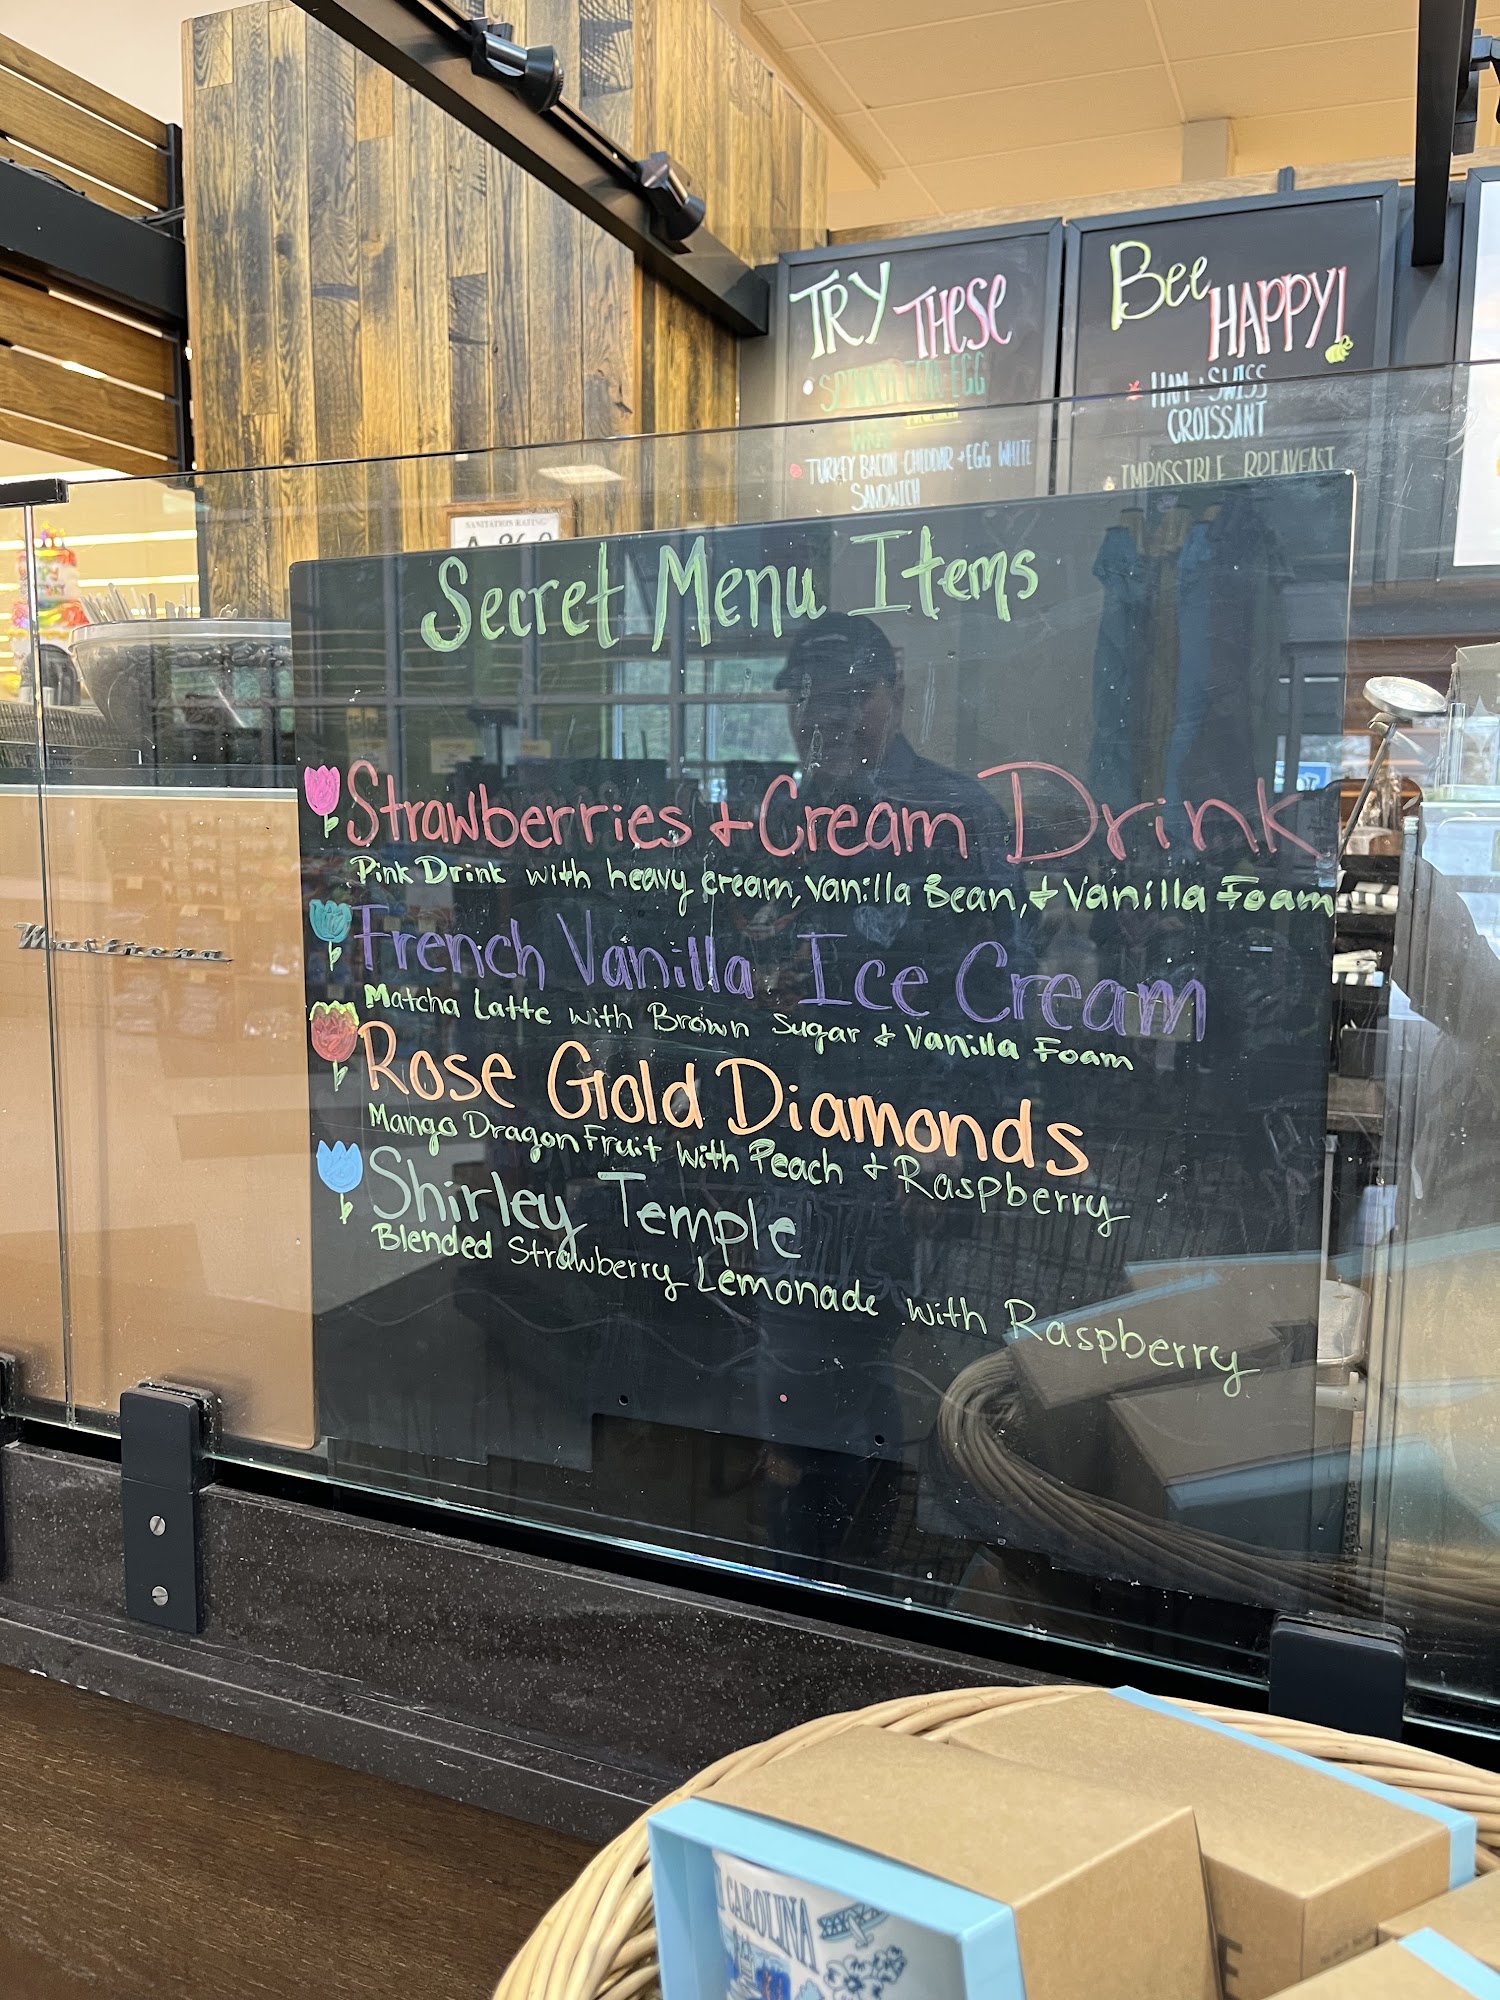 TRY THESE
SPINACH FETA EGG
WRAP
TURKEY BACON CHEDDAR + EGG WHITE
SANDWICH
Bee HAPPY!
HAM + SWISS
CROISSANT
IMPOSSIBLE BREAKFAST
SANITATION RATING
A
Secret Menu Items
Strawberries + Cream Drink
Pink Drink with heavy cream, Vanilla Bean, + Vanilla Foam
French Vanilla Ice Cream
Matcha Latte with Brown Sugar + Vanilla Foam
Rose Gold Diamonds
Mango DragonFruit with Peach + Raspberry
Shirley Temple
Blended Strawberry Lemonade with Raspberry
Mastrena
CAROLINA